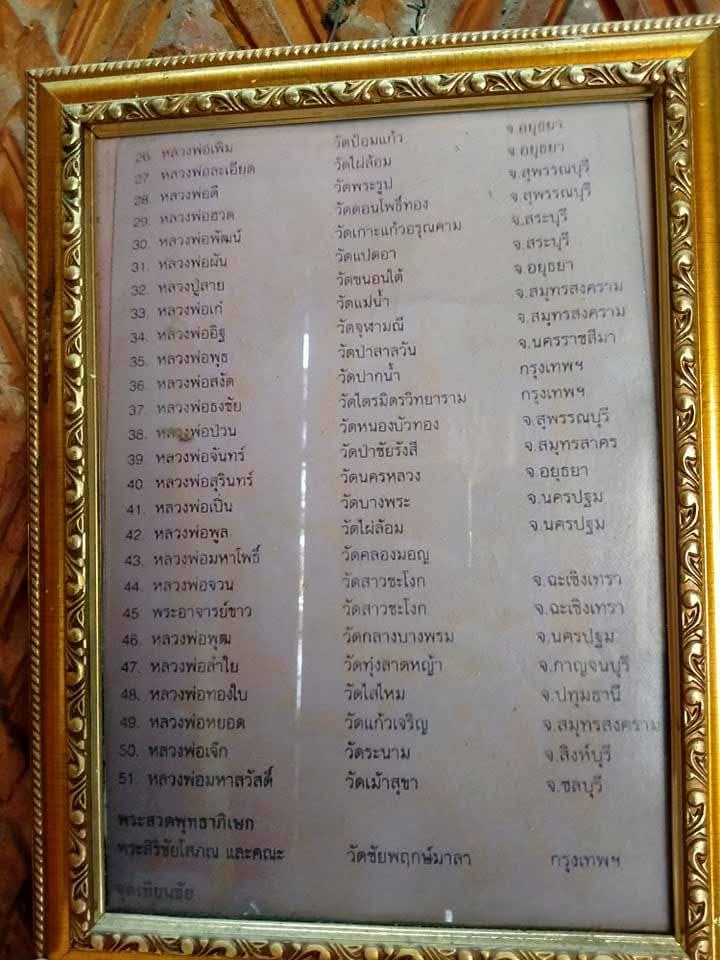 26. หลวงพ่อเพิ่ม วัดป้อมแก้ว จ.อยุธยา
27 หลวงพ่อละเอียด วัดไผ่ล้อม จ.อยุธยา
28. หลวงพ่อดี วัดพระรูป จ.สุพรรณบุรี
29. หลวงพ่อฮวด วัดดอนโพธิ์ทอง จ.สุพรรณบุรี
30. หลวงพ่อพัฒน์ วัดเกาะแก้วอรุณคาม จ.สระบุรี
31. หลวงพ่อผัน วัดแปดอา จ.สระบุรี
32. หลวงปู่สาย วัดขนอนใต้ จ.อยุธยา
33. หลวงพ่อเก๋ วัดแม่น้ำ จ.สมุทรสงคราม
34. หลวงพ่ออิฐ วัดจุฬามณี จ.สมุทรสงคราม
35. หลวงพ่อพุธ วัดป่าสาลวัน จ.นครราชสีมา
36. หลวงพ่อสงัด วัดปากน้ำ กรุงเทพฯ
37. หลวงพ่อธงชัย วัดไตรมิตรวิทยาราม กรุงเทพฯ
38. หลวงพ่อป่วน วัดหนองบัวทอง จ.สุพรรณบุรี
39 หลวงพ่อจันทร์ วัดป่าชัยรังสี จ.สมุทรสาคร
40 หลวงพ่อสุรินทร์ วัดนครหลวง จ.อยุธยา
41. หลวงพ่อเปิ่น วัดบางพระ จ.นครปฐม
42. หลวงพ่อพูล วัดไผ่ล้อม จ.นครปฐม
43. หลวงพ่อมหาโพธิ์ วัดคลองมอญ
44. หลวงพ่อจวน วัดสาวชะโงก จ.ฉะเชิงเทรา
45 พระอาจารย์ขาว วัดสาวชะโงก จ.ฉะเชิงเทรา
46. หลวงพ่อพุฒ วัดกลางบางพรม จ.นครปฐม
47. หลวงพ่อลำใย วัดทุ่งลาดหญ้า จ.กาญจนบุรี
48. หลวงพ่อทองใบ วัดไส่ไหม จ.ปทุมธานี
49. หลวงพ่อหยอด วัดแก้วเจริญ จ.สมุทรสงคราม
50. หลวงพ่อเจ๊ก วัดระนาม จ.สิงห์บุรี
51. หลวงพ่อมหาสวัสดิ์ วัดเม้าสุขา จ.ชลบุรี
พระสวดพุทธาภิเษก
พระสิริชัยโสภณ และคณะ วัดชัยพฤกษ์มาลา กรุงเทพฯ
จุดเทียนชัย